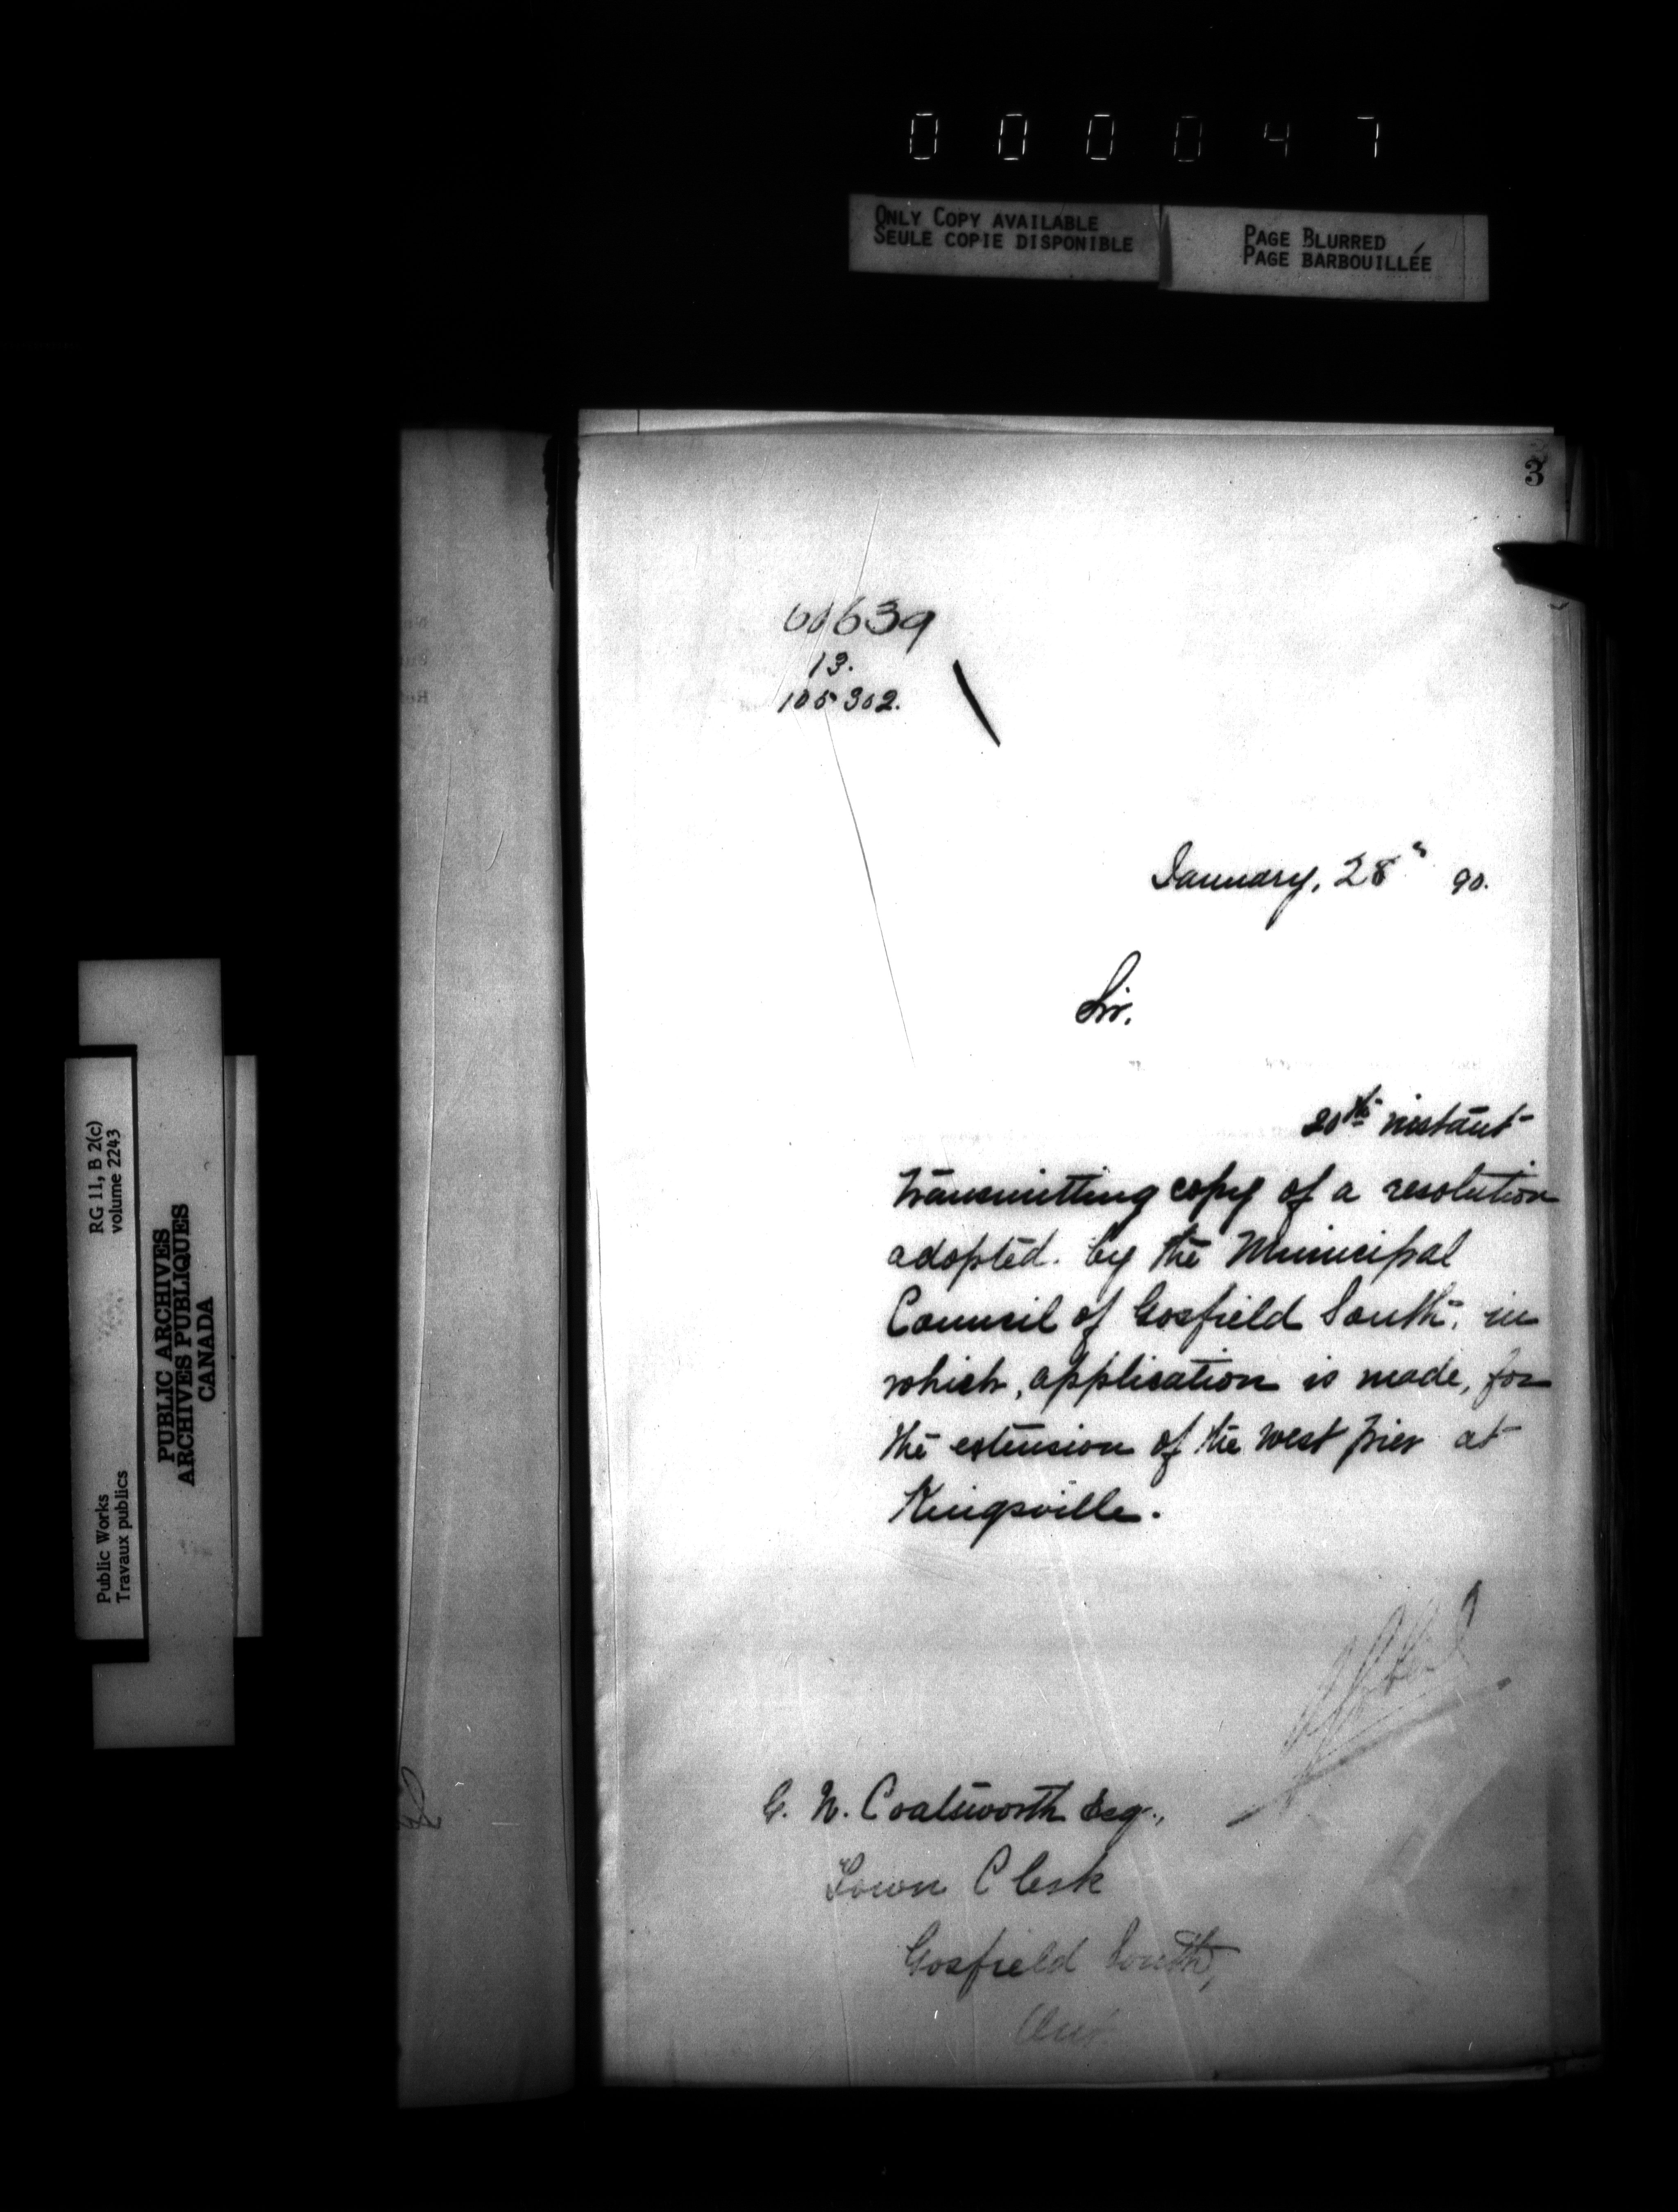 000047
ONLY COPY AVAILABLE
SEULE COPIE DISPONIBLE
PAGE BLURRED
PAGE BARBOUILLÉE
3
639
13.
105302.
January, 28 90.
Sir.
20th instant
transmitting copy of a resolution
adopted. by the Municipal
Council of Gosfield South, in
which, application is made, for
the extension of the west pier at
Kingsville.
N. Coatsworth Esq.,
Town Clerk
Gosfield South,
Ont
RG 11, B 2(c)
volume 2243
Public Works
Travaux publics
PUBLIC ARCHIVES
ARCHIVES PUBLIQUES
CANADA